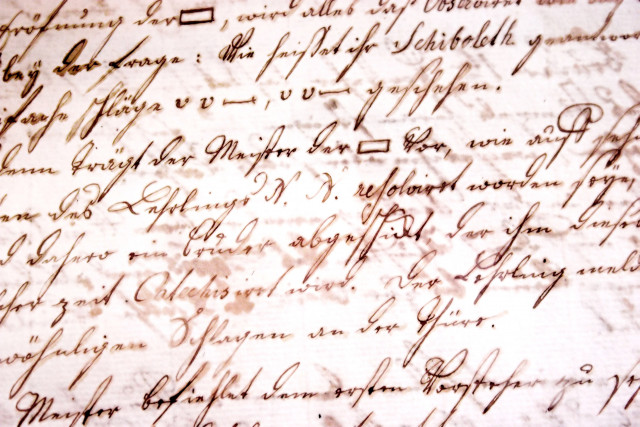 Eröffnung der ▭, wird alles das
bey der Frage: Wie heisset ihr Schiboleth
fache Schläge υ υ —, υ υ — geschehen.
denn trägt der Meister der ▭ vor, wie auf
en des Lehrlings N. N. resolviret worden seye,
d dahero ein Bruder abgeschickt, der ihm diese
zeit Catechisiret wird. Der Lehrling mel
wöhnligen Schlagen an der Thüre.
Meister befiehlet dem ersten Vorsteher zu